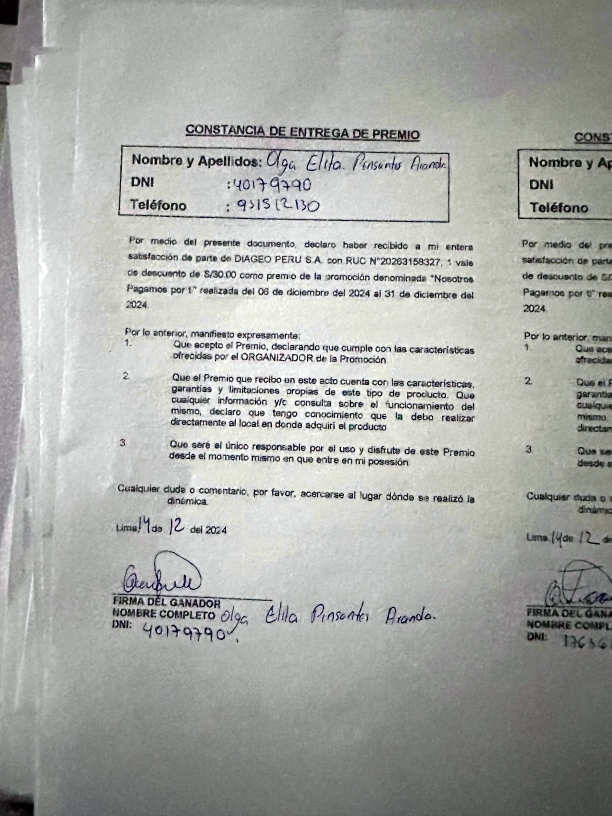 CONSTANCIA DE ENTREGA DE PREMIO
Nombre y Apellidos: Olga Elita. Pinsantes Aranda
DNI :40179790
Teléfono : 931512130
Por medio del presente documento, declaro haber recibido a mi entera
satisfacción de parte de DIAGEO PERU S.A. con RUC N°20263158327, 1 vale
de descuento de S/30.00 como premio de la promoción denominada "Nosotros
Pagamos por ti" realizada del 06 de diciembre del 2024 al 31 de diciembre del
2024.
Por lo anterior, manifiesto expresamente:
1. Que acepto el Premio, declarando que cumple con las características
ofrecidas por el ORGANIZADOR de la Promoción.
2. Que el Premio que recibo en este acto cuenta con las características,
garantías y limitaciones propias de este tipo de producto. Que
cualquier información y/c consulta sobre el funcionamiento del
mismo, declaro que tengo conocimiento que la debo realizar
directamente al local en donde adquirí el producto
3 Que seré el único responsable por el uso y disfrute de este Premio
desde el momento mismo en que entre en mi posesión.
Cualquier duda o comentario, por favor, acercarse al lugar dónde se realizó la
dinámica.
Lima, 14 de 12 del 2024
FIRMA DEL GANADOR
NOMBRE COMPLETO Olga Elita Pinsantes Aranda.
DNI: 40179790
CONST
Nombre y Ap
DNI
Teléfono
Por medio del pre
satisfacción de parte
de descuento de S/
Pagamos por ti" re
2024.
Por lo anterior, man
1. Que ace
ofrecida
2. Que el P
garantía
cualquie
mismo,
directan
3 Que se
desde e
Cualquier duda o
dinámic
Lima, 14 de 12 de
FIRMA DEL GANA
NOMBRE COMPL
DNI: